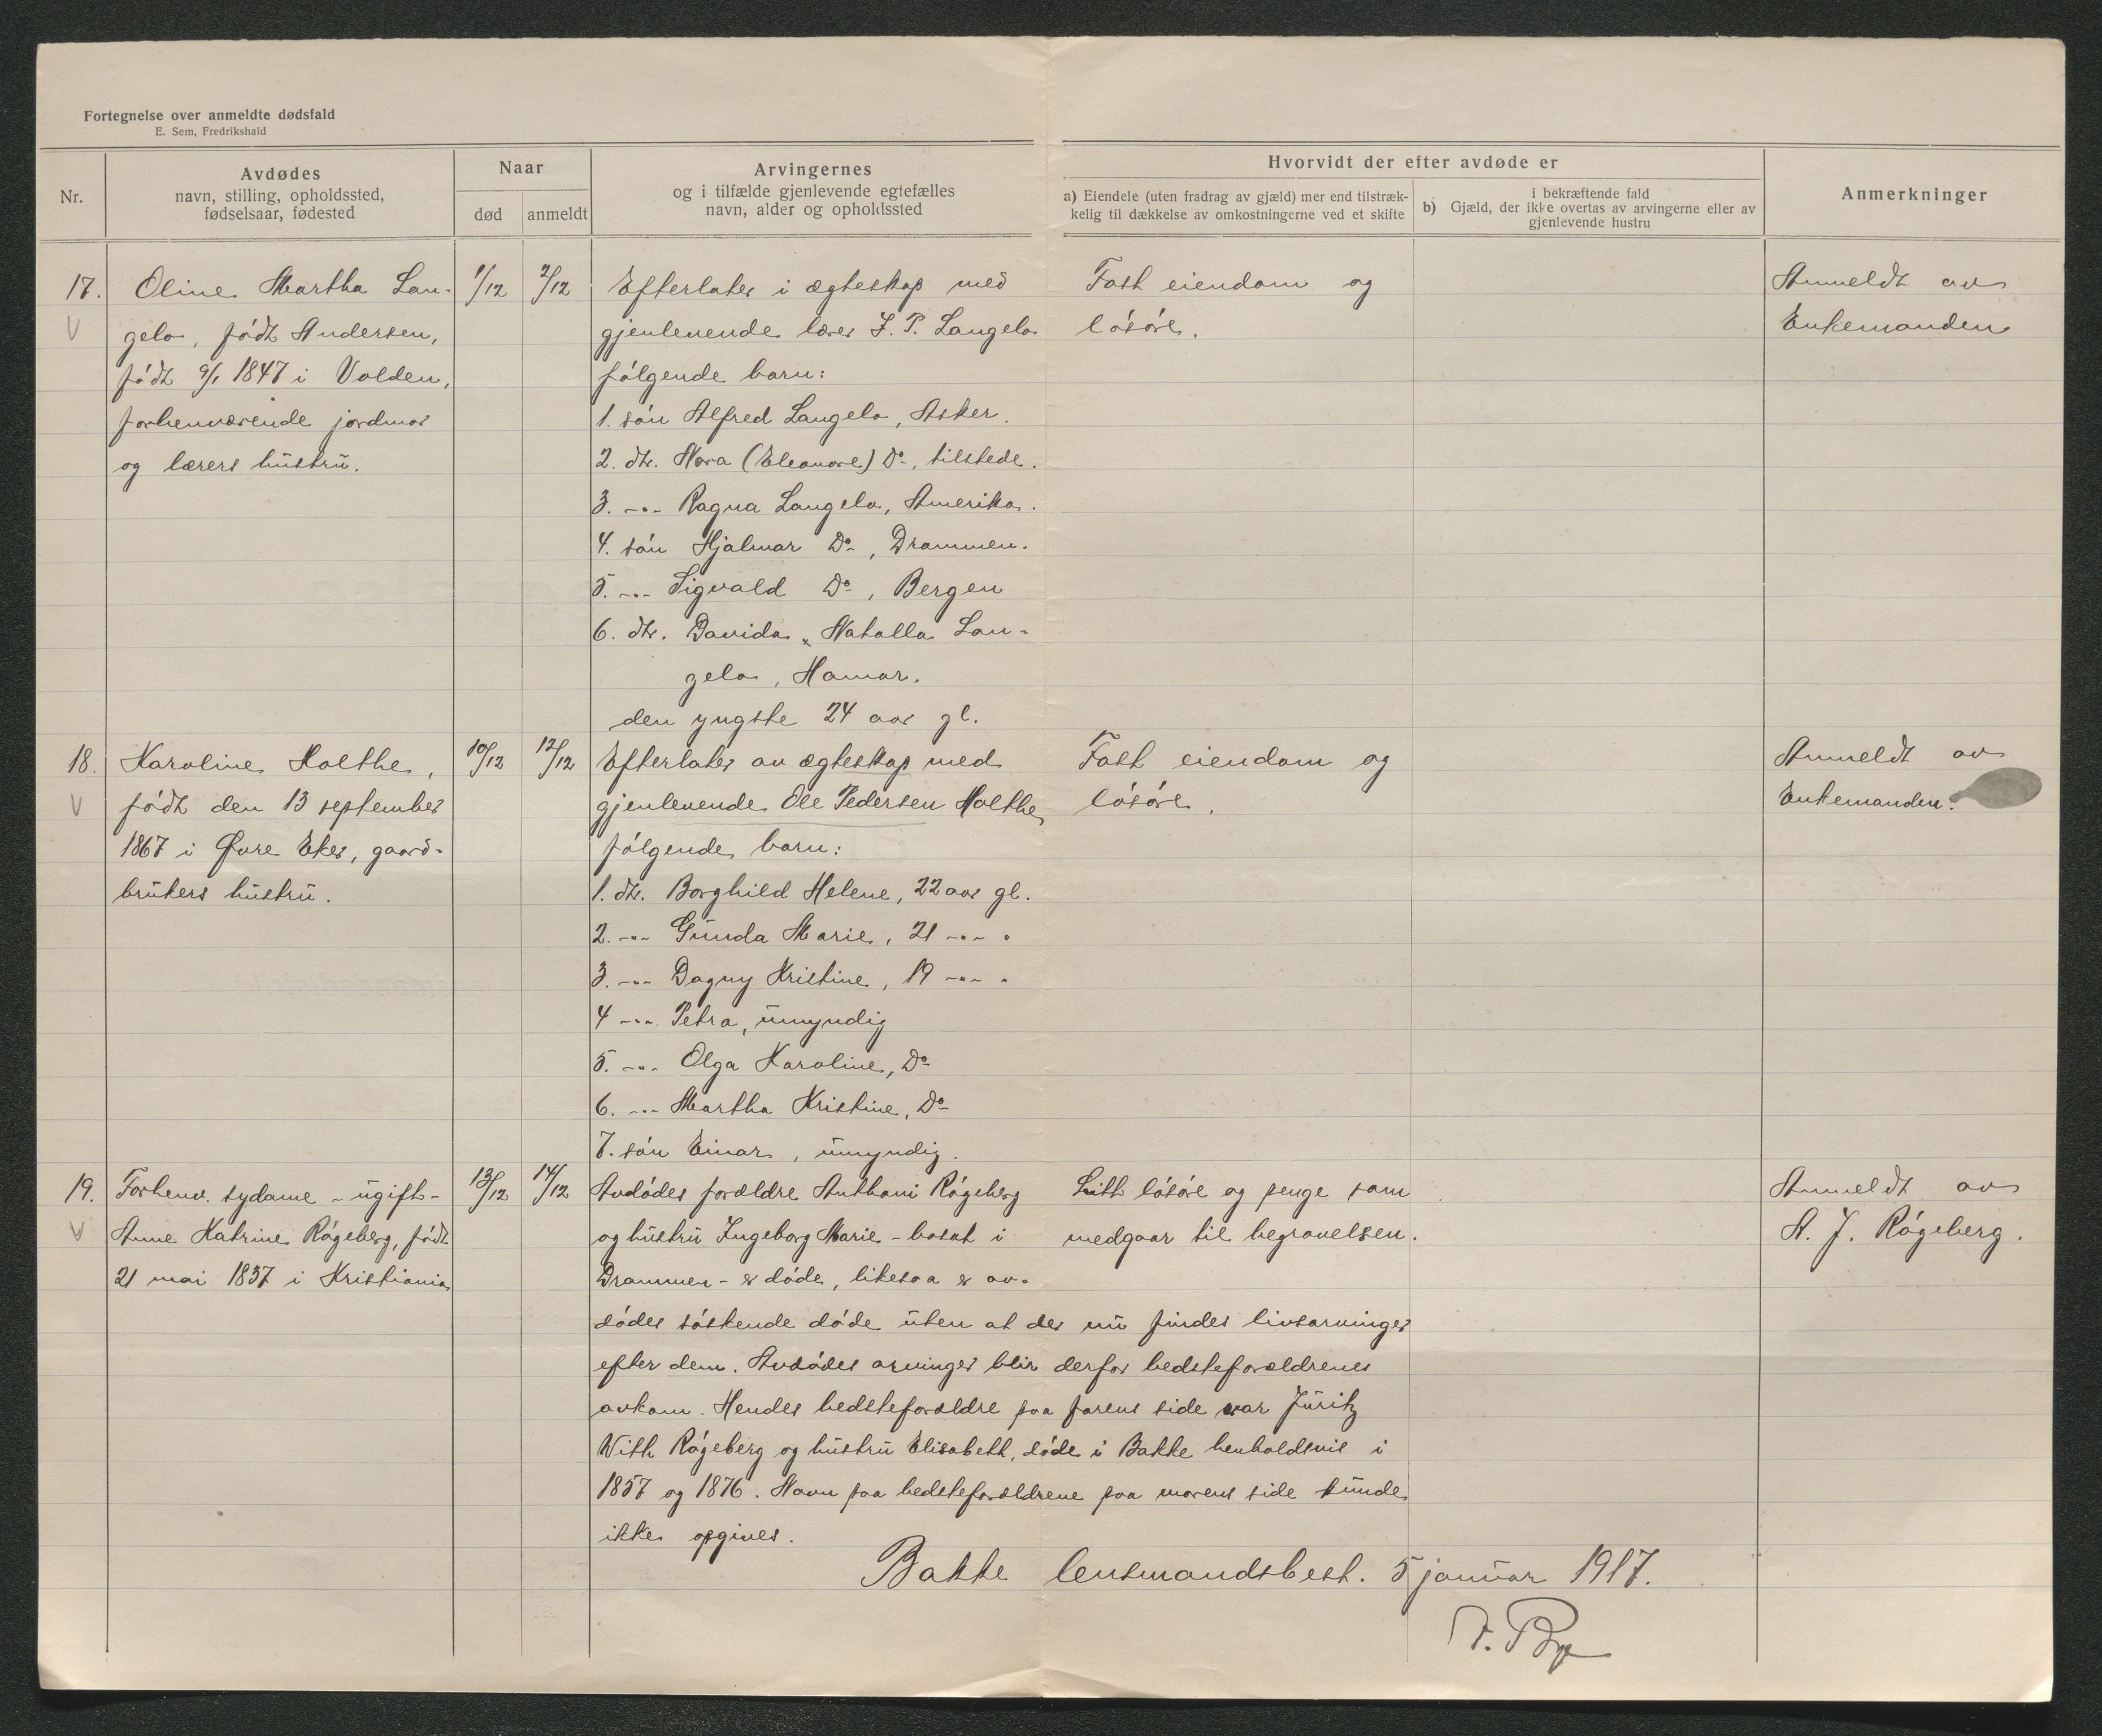 Fortegnelse over anmeldte dødsfald
E. Sem, Fredrikshald
Nr.
Avdødes
navn, stilling, opholdssted,
fødselsaar, fødested
Naar
død
anmeldt
Arvingernes
og i tilfælde gjenlevende egtefælles
navn, alder og opholdssted
Hvorvidt der efter avdøde er
a) Eiendele (uten fradrag av gjæld) mer end tilstræk-
kelig til dækkelse av omkostningerne ved et skifte
i bekræftende fald
b) Gjæld, der ikke overtas av arvingerne eller av
gjenlevende hustru
Anmerkninger
17.
V
Oline Martha Lan-
gelo, født Andersen,
født 9/1 1847 i Volden,
forhenværende jordmor
og lærers hustru.
1/12
2/12
Efterlater i ægteskap med
gjenlevende lærer J. P. Langelo
følgende barn:
1. søn Alfred Langelo, Asker.
2. dtr. Nora (Eleonore) Do, tilstede.
3. -"- Ragna Langelo, Amerika.
4. søn Hjalmar Do, Drammen.
5. -"- Sigvald Do, Bergen
6. dtr. Davida Natalla Lan-
gelo, Hamar.
den yngste 24 aar gl.
Fast eiendom og
løsøre.
Anmeldt av
Enkemanden
18.
V
Karoline Holthe,
født den 13 september
1867 i Øvre Eker, gaard-
brukers hustru.
10/12
12/12
Efterlater av ægteskap med
gjenlevende Ole Pedersen Holthe
følgende barn:
1. dtr. Borghild Helene, 22 aar gl.
2. -"- Gunda Marie, 21 -"- "
3. -"- Dagny Kristine, 19 -"- "
4 -"- Petra, umyndig
5. -"- Olga Karoline, Do
6. -"- Martha Kristine, Do
7. søn Einar, umyndig.
Fast eiendom og
løsøre.
Anmeldt av
Enkemanden.
19.
V
Forhenv. sydame - ugift -
Anne Katrine Røgeberg, født
21 mai 1837 i Kristiania
13/12
14/12
Avdødes forældre Anthoni Røgeberg
og hustru Ingeborg Marie - bosat i
Drammen - er døde, likesaa er av-
dødes søskende døde uten at der nu findes livsarvinger
efter dem. Avdødes arvinger blir derfor bedsteforældrenes
avkom. Hendes bedsteforældre paa farens side var Juritz
With Røgeberg og hustru Elisabeth, døde i Bakke henholdsvis i
1857 og 1876. Navn paa bedsteforældrene paa morens side kunde
ikke opgives.
Litt løsøre og penge som
medgaar til begravelsen.
Anmeldt av
A. J. Røgeberg.
Bakke lensmandsbest. 5 januar 1917.